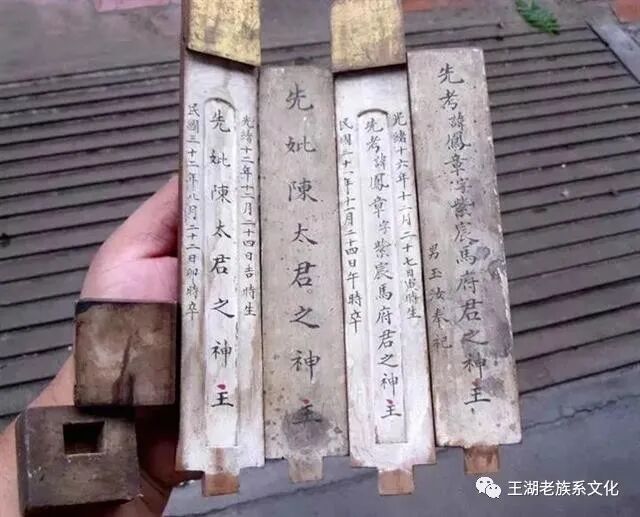 先考諱鳳章字紫宸馬府君之神主
男玉汝奉祀
光緒十六年十二月二十七日寅時生
先考諱鳳章字紫宸馬府君之神主
民國三十一年十一月二十四日午時卒
先妣陳太君之神主
光緒十二年十二月二十四日吉時生
先妣陳太君之神主
民國三十二年八月二十二日卯時卒
王湖老族系文化